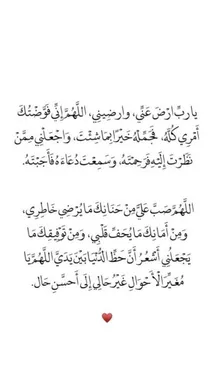 ياربِّ ارْضَ عَنِّي، وارضِيني، اللَّهُمَّ إِنِّي فَوَّضْتُكَ
أَمْرِي كُلَّهُ، فَجَمِّلْهُ خَيْرًا بِمَا شِئْتَ، وَاجْعَلْنِي مِمَّنْ
نَظَرْتَ إِلَيْهِ فَرَحِمْتَهُ، وَسَمِعْتَ دُعَاءَهُ فَأَجَبْتَهُ.
اللَّهُمَّ صُبَّ عَلَيَّ مِنْ حَنَانِكَ مَا يُرْضِي خَاطِرِي،
وَمِنْ أَمَانِكَ مَا يُحَفِّ قَلْبِي، وَمِنْ تَوْفِيقِكَ مَا
يَجْعَلُنِي أَشْعُرُ أَنَّ حَظَّ الدُّنْيَا بَيْنَ يَدَيَّ اللَّهُمَّ يَا
مُغَيِّرَ الْأَحْوَالِ غَيِّرْ حَالِي إِلَى أَحْسَنِ حَال.